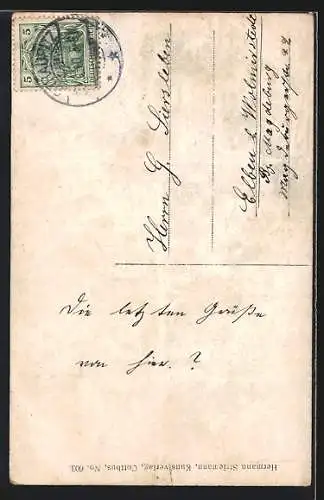 5 5
Herrn G. Siersleben
Elbeu b. Wolmirstedt
Bz. Magdeburg
Magdeburgerstr. 22
Die letzten Grüße
von hier.?
Hermann Striemann, Kunstverlag, Cottbus, No. 603.